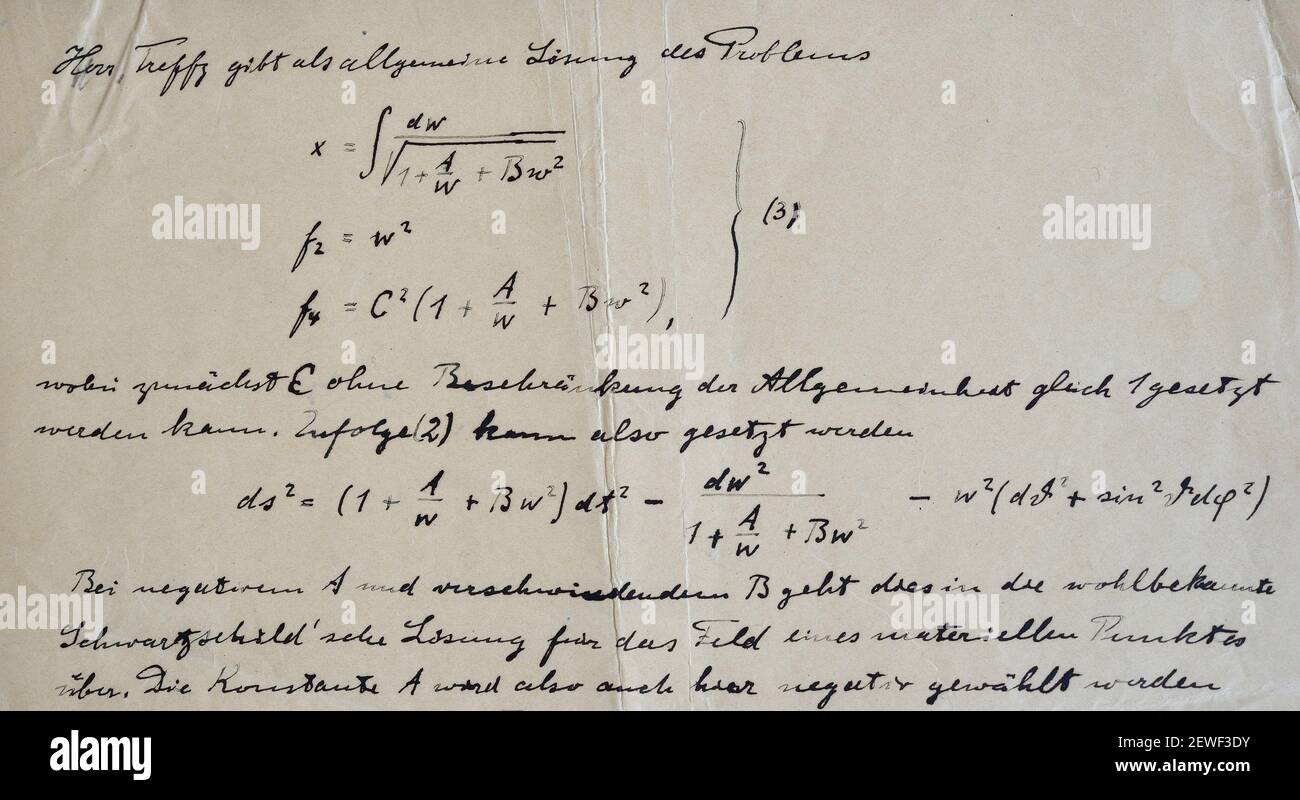 Herr Treffz gibt als allgemeine Lösung des Problems
x = ∫ dw / √(1 + A/w + Bw²)
f₂ = w²
(3)
f₄ = C²(1 + A/w + Bw²),
wobei zunächst C ohne Beschränkung der Allgemeinheit gleich 1 gesetzt
werden kann. Zufolge (2) kann also gesetzt werden
ds² = (1 + A/w + Bw²)dt² − dw² / (1 + A/w + Bw²) − w²(dϑ² + sin²ϑ dφ²)
Bei negativem A und verschwindendem B geht dies in die wohlbekannte
Schwartzschild'sche Lösung für das Feld eines materiellen Punktes
über. Die Konstante A wird also auch hier negativ gewählt werden
alamy
alamy
alamy
alamy
alamy
Image ID: 2EWF3DY
www.alamy.com